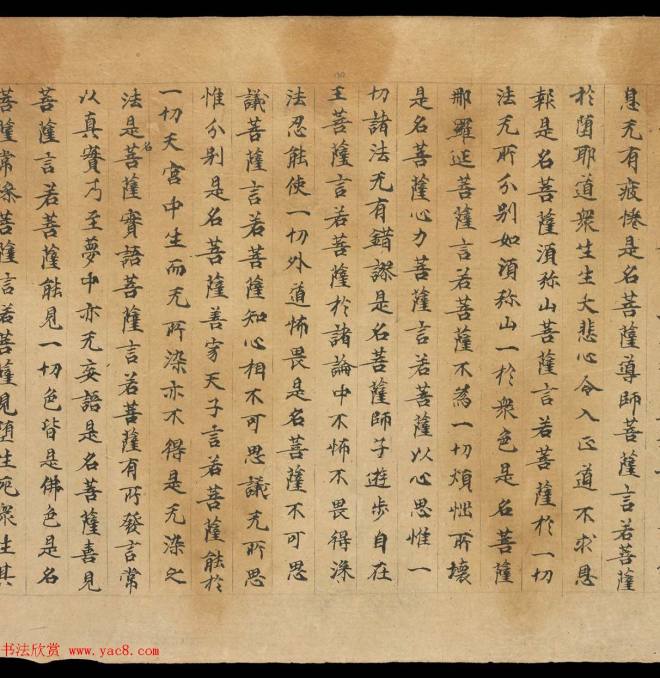 息无有疲惓是名菩薩導師菩薩言若菩薩
於墮耶道衆生生大悲心令入正道不求恩
報是名菩薩須弥山菩薩言若菩薩於一切
法无所分别如須弥山一於衆色是名菩薩
那羅延菩薩言若菩薩不為一切煩惱所壞
是名菩薩心力菩薩言若菩薩以心思惟一
切諸法无有錯謬是名菩薩師子遊步自在
王菩薩言若菩薩於諸論中不怖不畏得深
法忍能使一切外道怖畏是名菩薩不可思
議菩薩言若菩薩知心相不可思議无所思
惟分别是名菩薩善寂天子言若菩薩能於
一切天宫中生而无所染亦不得是无染之
法是名菩薩實語菩薩言若菩薩有所發言常
以真實乃至夢中亦无妄語是名菩薩喜見
菩薩言若菩薩能見一切色皆是佛色是名
菩薩常慘菩薩言若菩薩見墮生死衆生其
书法欣赏 www.yac8.com